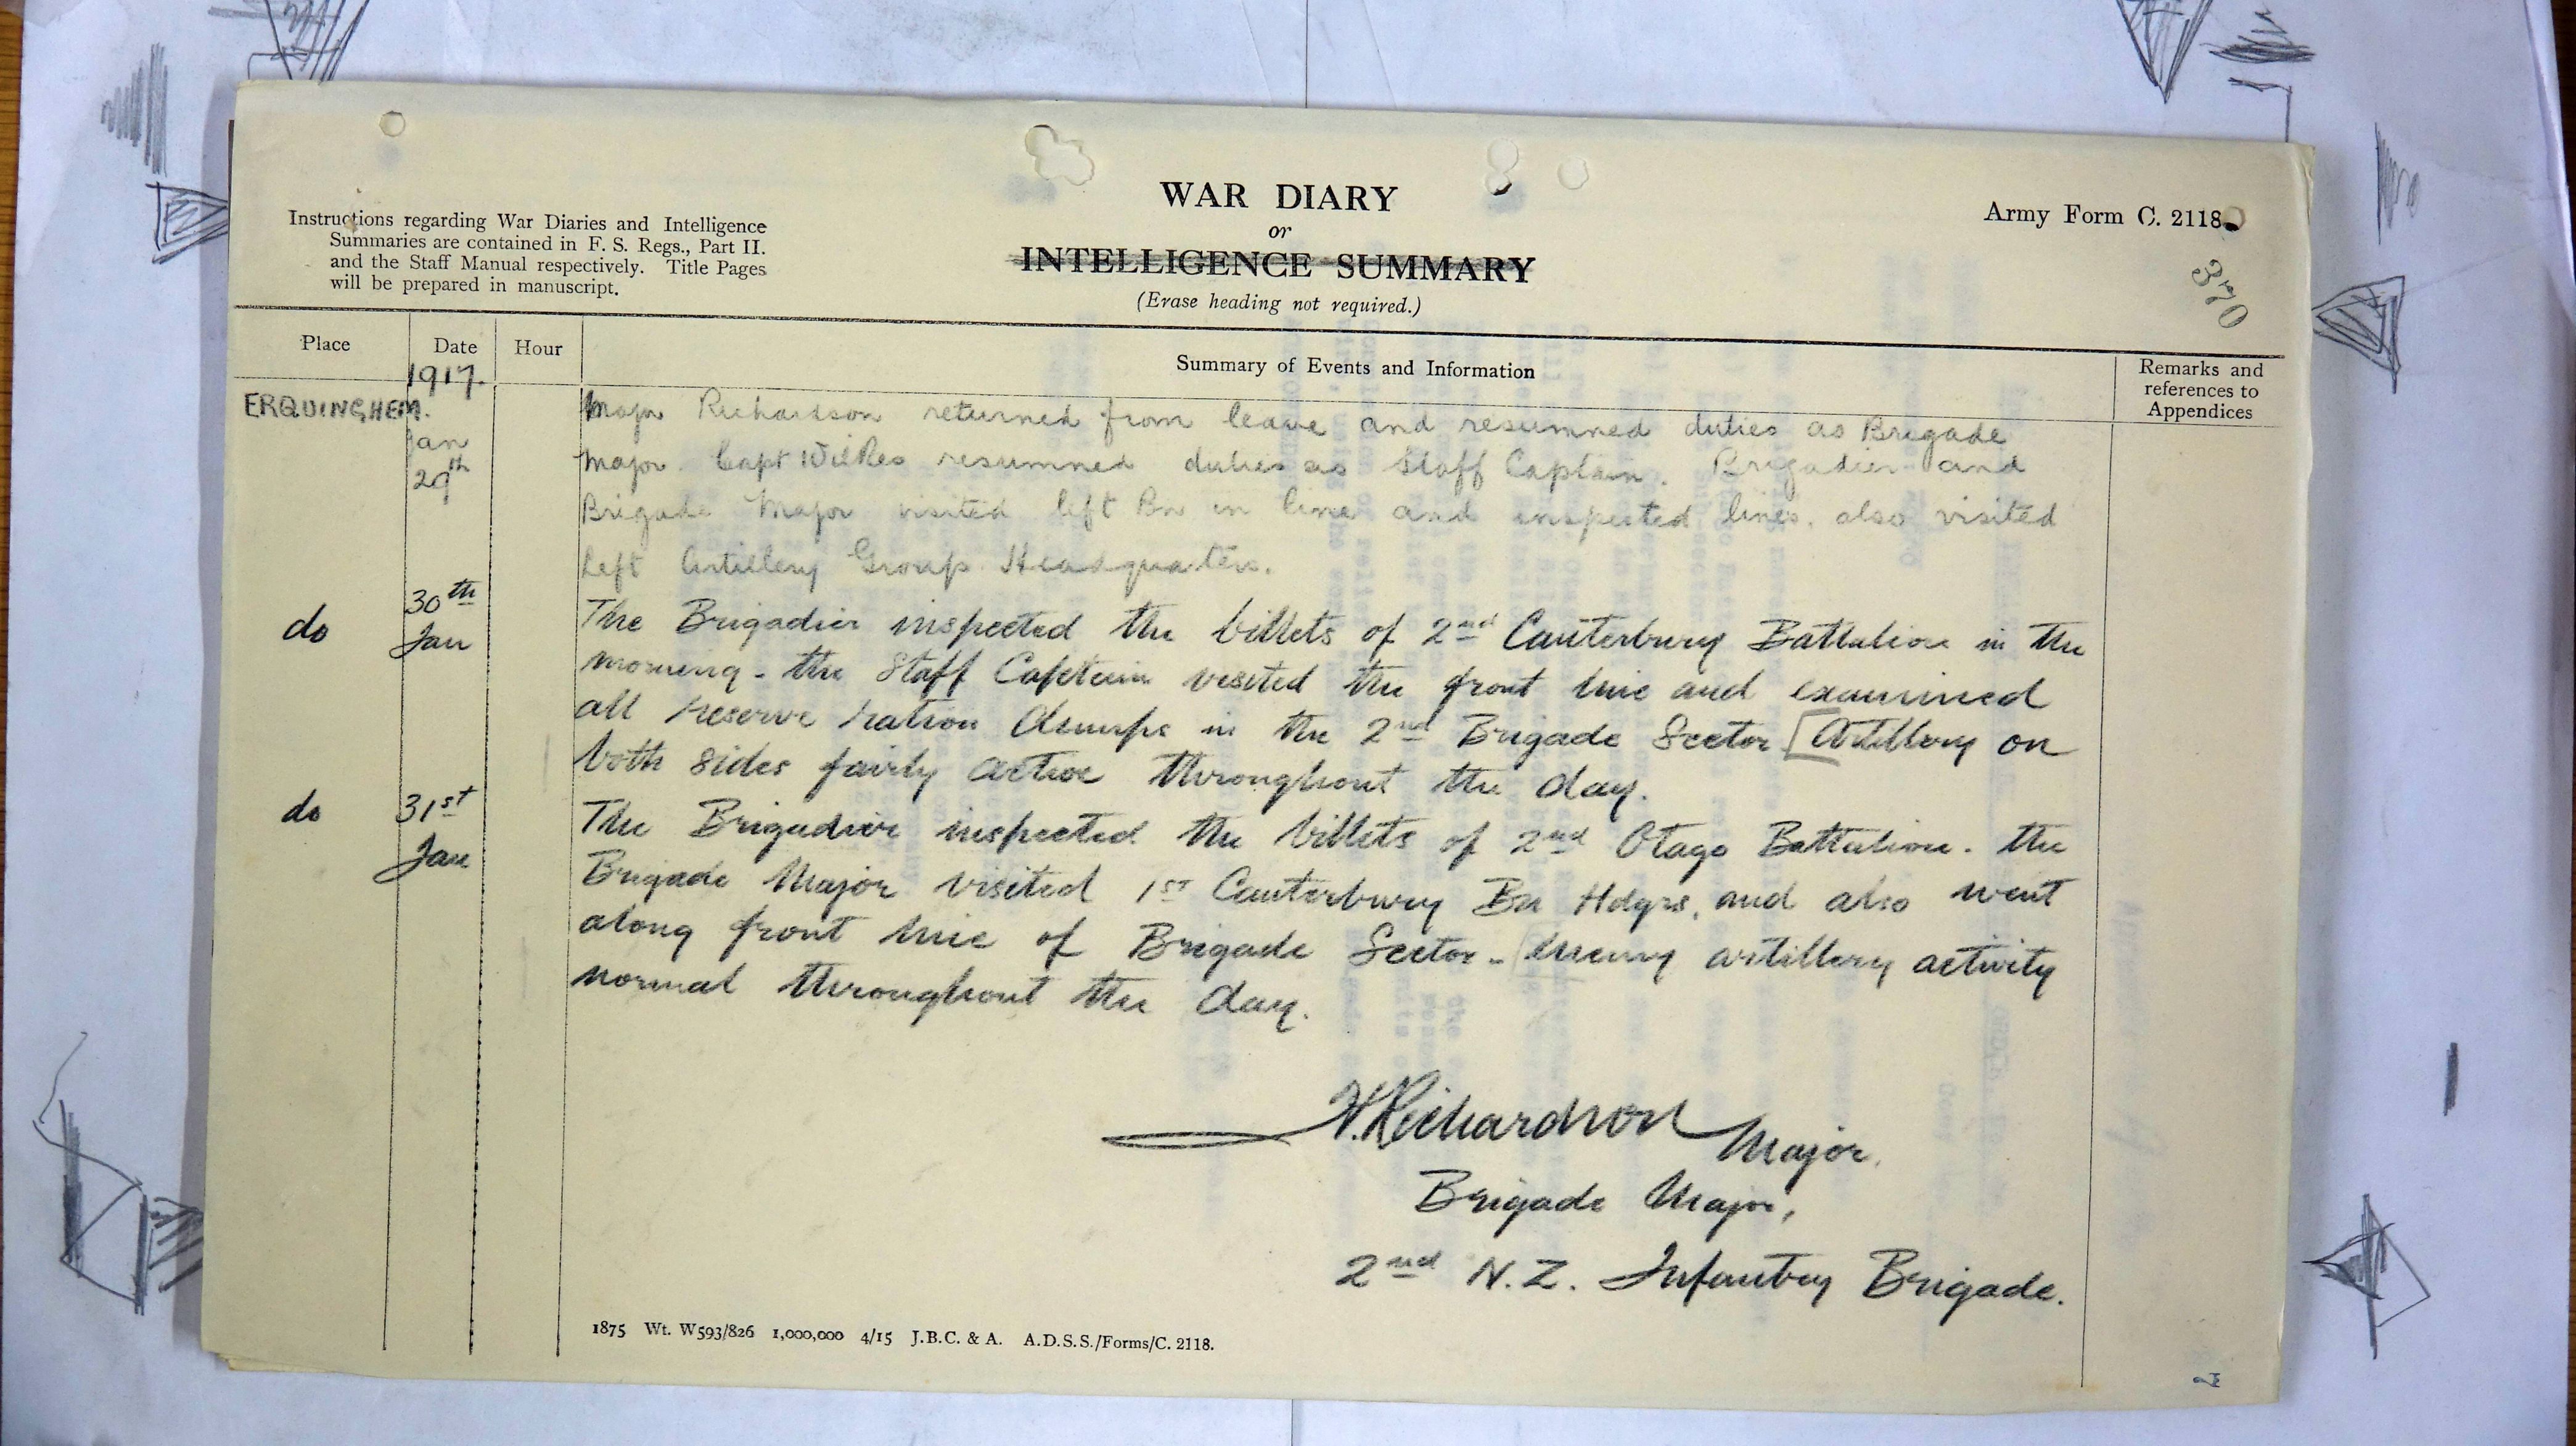 Instructions regarding War Diaries and Intelligence
Summaries are contained in F. S. Regs., Part II.
and the Staff Manual respectively. Title Pages
will be prepared in manuscript.
WAR DIARY
or
INTELLIGENCE SUMMARY
(Erase heading not required.)
Army Form C. 2118.
370
Place Date Hour Summary of Events and Information Remarks and references to Appendices
1917.
ERQUINGHEM.
Jan
29th
Major Richardson returned from leave and resumned duties as Brigade
Major. Capt Wilkes resumned duties as Staff Captain. Brigadier and
Brigade Major visited left Bn in line and inspected lines. also visited
Left Artillery Group Headquarters.
do 30th Jan
The Brigadier inspected the billets of 2nd Canterbury Battalion in the
morning - the Staff Captain visited the front line and examined
all reserve ration dumps in the 2nd Brigade Sector [Artillery on
both sides fairly active throughout the day.
do 31st Jan
The Brigadier inspected the billets of 2nd Otago Battalion. the
Brigade Major visited 1st Canterbury Bn Hdqrs, and also went
along front line of Brigade Sector - [enemy artillery activity
normal throughout the day.
H. Richardson Major.
Brigade Major,
2nd N.Z. Infantry Brigade.
1875 Wt. W593/826 1,000,000 4/15 J.B.C. & A. A.D.S.S./Forms/C. 2118.